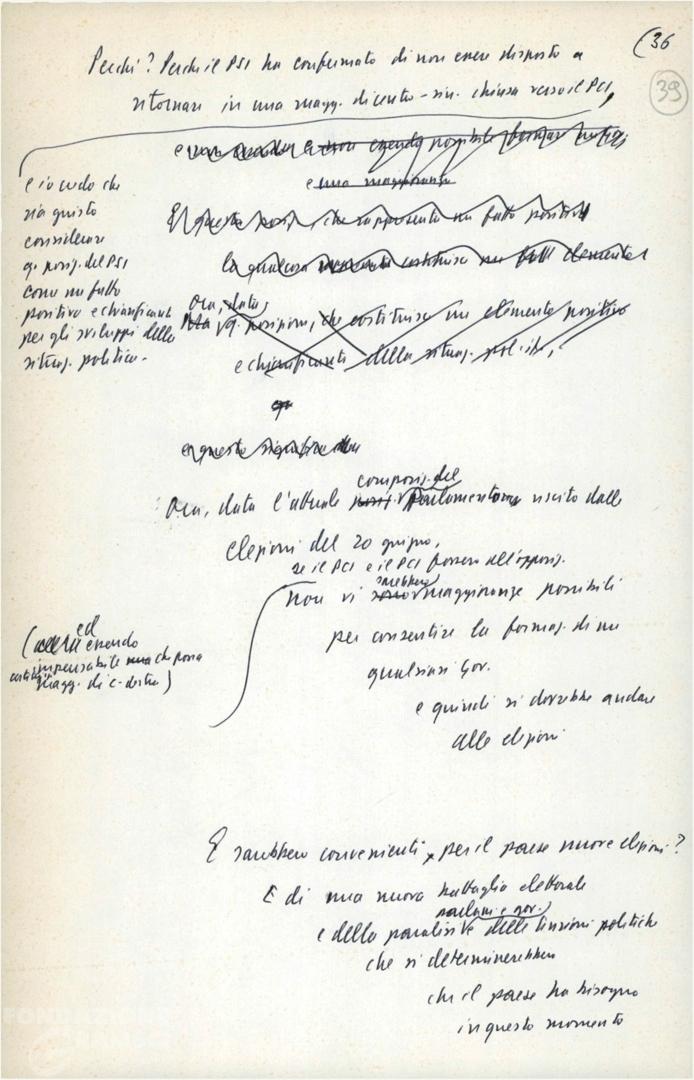 (36
39
Perché? Perché il PSI ha confermato di non essere disposto a
ritornare in una magg. di centro-sin. chiusa verso il PCI,
e essendo possibile formare
e una maggioranza
E questa posiz., che rappresenta un fatto positivo
la qual cosa costituisce un elemento
e io credo che
sia giusto
considerare
q. posiz. del PSI
come un fatto
positivo e chiarificante
per gli sviluppi della
situaz. politica.
Ora, data
q. posizione, che costituisce un elemento positivo
e chiarificante della situaz. polit.,
e questo significa
composiz. del
Ora, data l'attuale Parlamento uscito dalle
elezioni del 20 giugno,
se il PCI e il PCI fossero all'opposiz.
sarebbero
non vi sono maggioranze possibili
per consentire la formaz. di un
qualsiasi gov.
(ed essendo
impensabile che possa
costituirsi magg. di c-destra)
e quindi si dovrebbe andare
alle elezioni
E sarebbero convenienti per il paese nuove elezioni?
È di una nuova battaglia elettorale
parlam. e gov.
e della paralisi e delle tensioni politiche
che si determinerebbero
che il paese ha bisogno
in questo momento